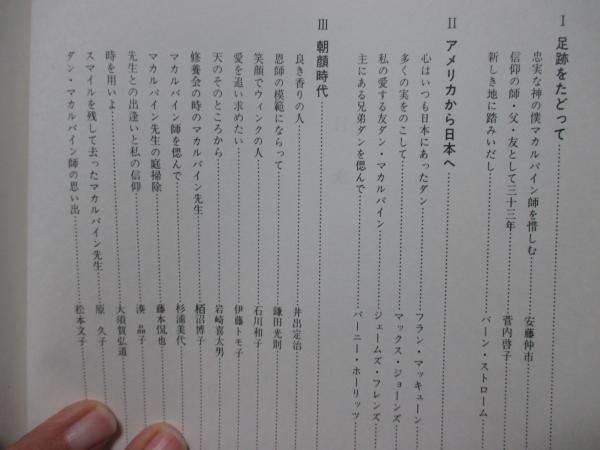 I 足跡をたどって
忠実な神の僕マカルパイン師を惜しむ 安藤仲市
信仰の師・父・友として三十三年 菅内啓子
新しき地に踏みいだし バーン・ストローム
II アメリカから日本へ
心はいつも日本にあったダン フラン・マッキューン
多くの実をのこして マックス・ジョーンズ
私の愛する友ダン・マカルパイン ジェームズ・フレンズ
主にある兄弟ダンを偲んで バーニー・ホーリッツ
III 朝顔時代
良き香りの人 井出定治
恩師の模範にならって 鎌田光則
笑顔でウィンクの人 石川和子
愛を追い求めたい 伊藤トモ子
天のそのところから 岩崎喜太男
修養会の時のマカルパイン先生 栢沼博子
マカルパイン師を偲んで 杉浦美代
マカルパイン先生の庭掃除 藤本侃也
先生との出逢いと私の信仰 湊晶子
時を用いよ 大須賀弘道
スマイルを残して去ったマカルパイン先生 原久子
ダン・マカルパイン師の思い出 松本文子